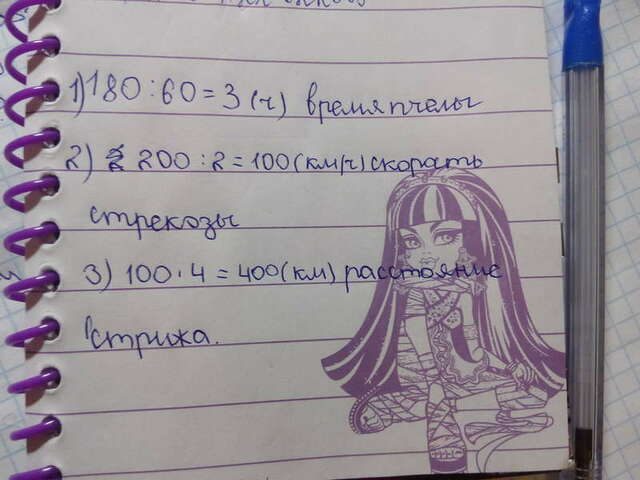 1) 180 : 60 = 3 (ч) время пчелы
2) 200 : 2 = 100 (км/ч) скорать
стрекозы
3) 100 · 4 = 400 (км) расстояние
стрижа.